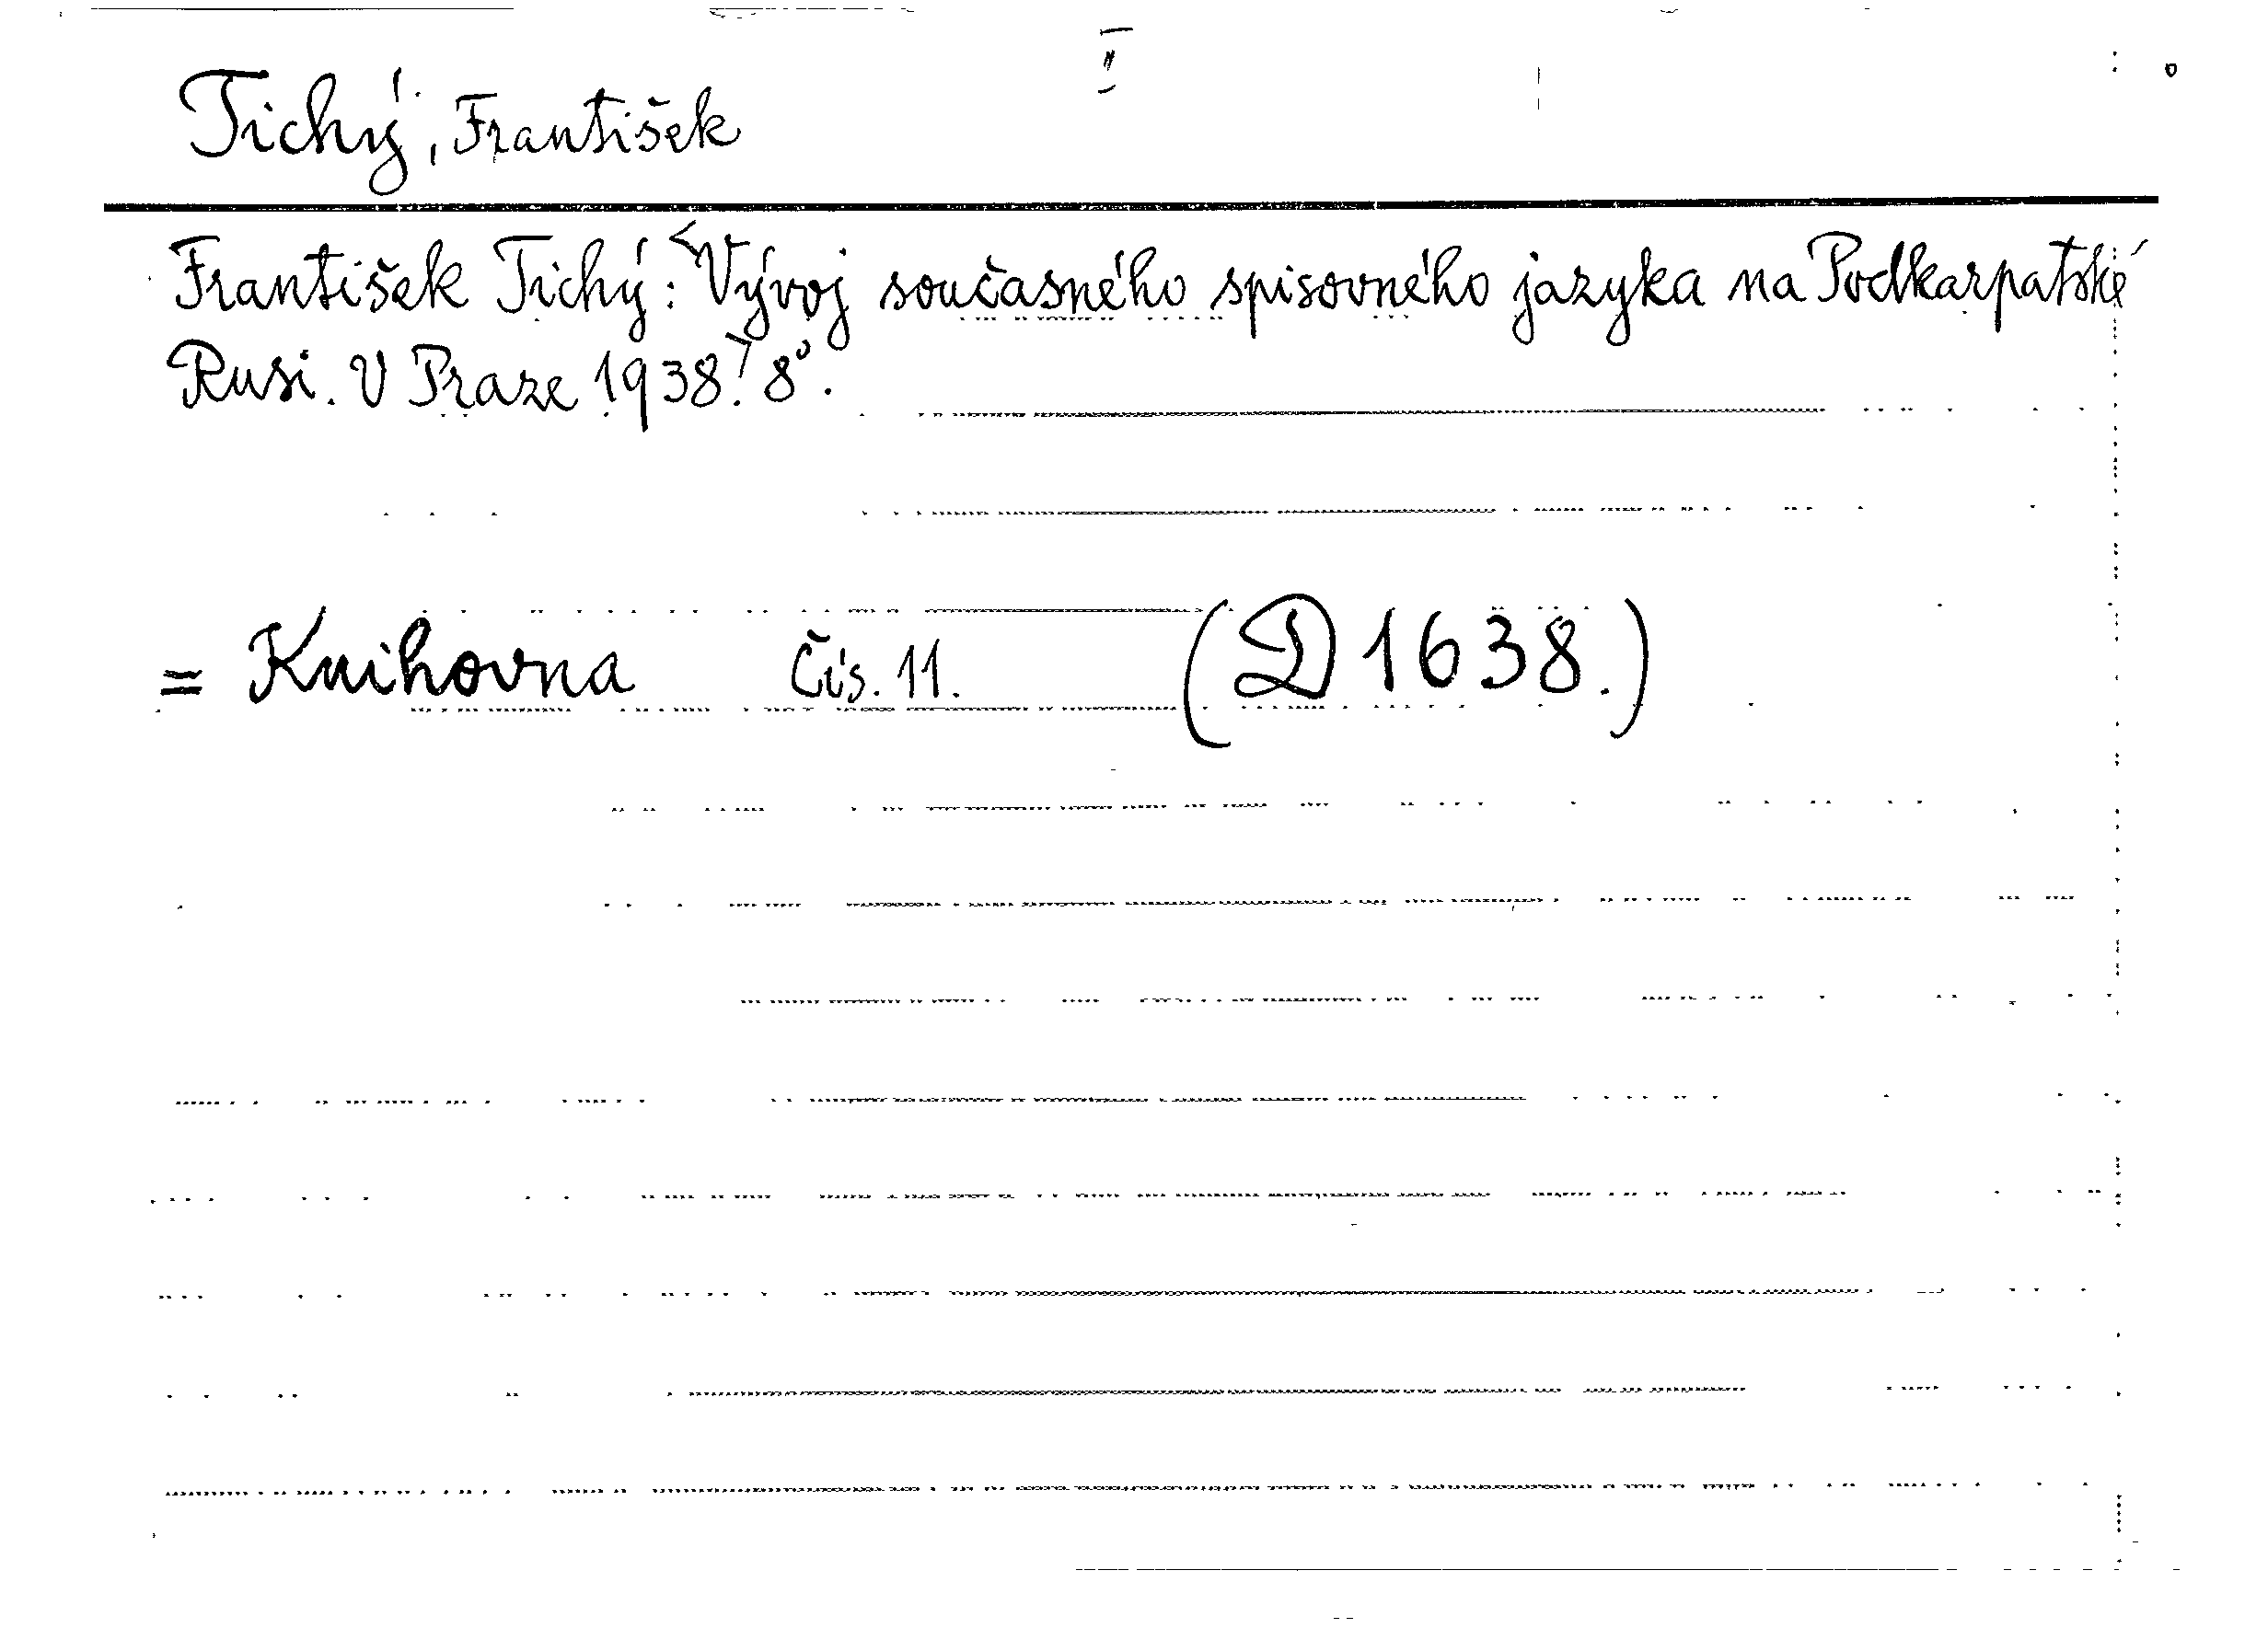 Tichý, František
František Tichý: Vývoj současného spisovného jazyka na Podkarpatské
Rusi. V Praze 1938. 8°.
= Knihovna Čís. 11. (D 1638.)